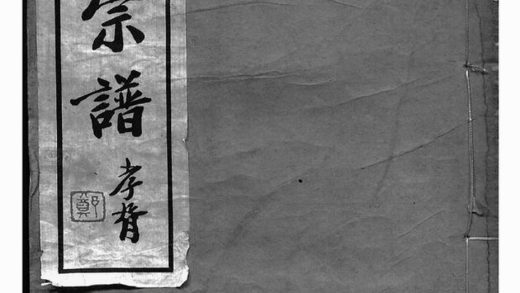 宗譜
孝胥
鄭